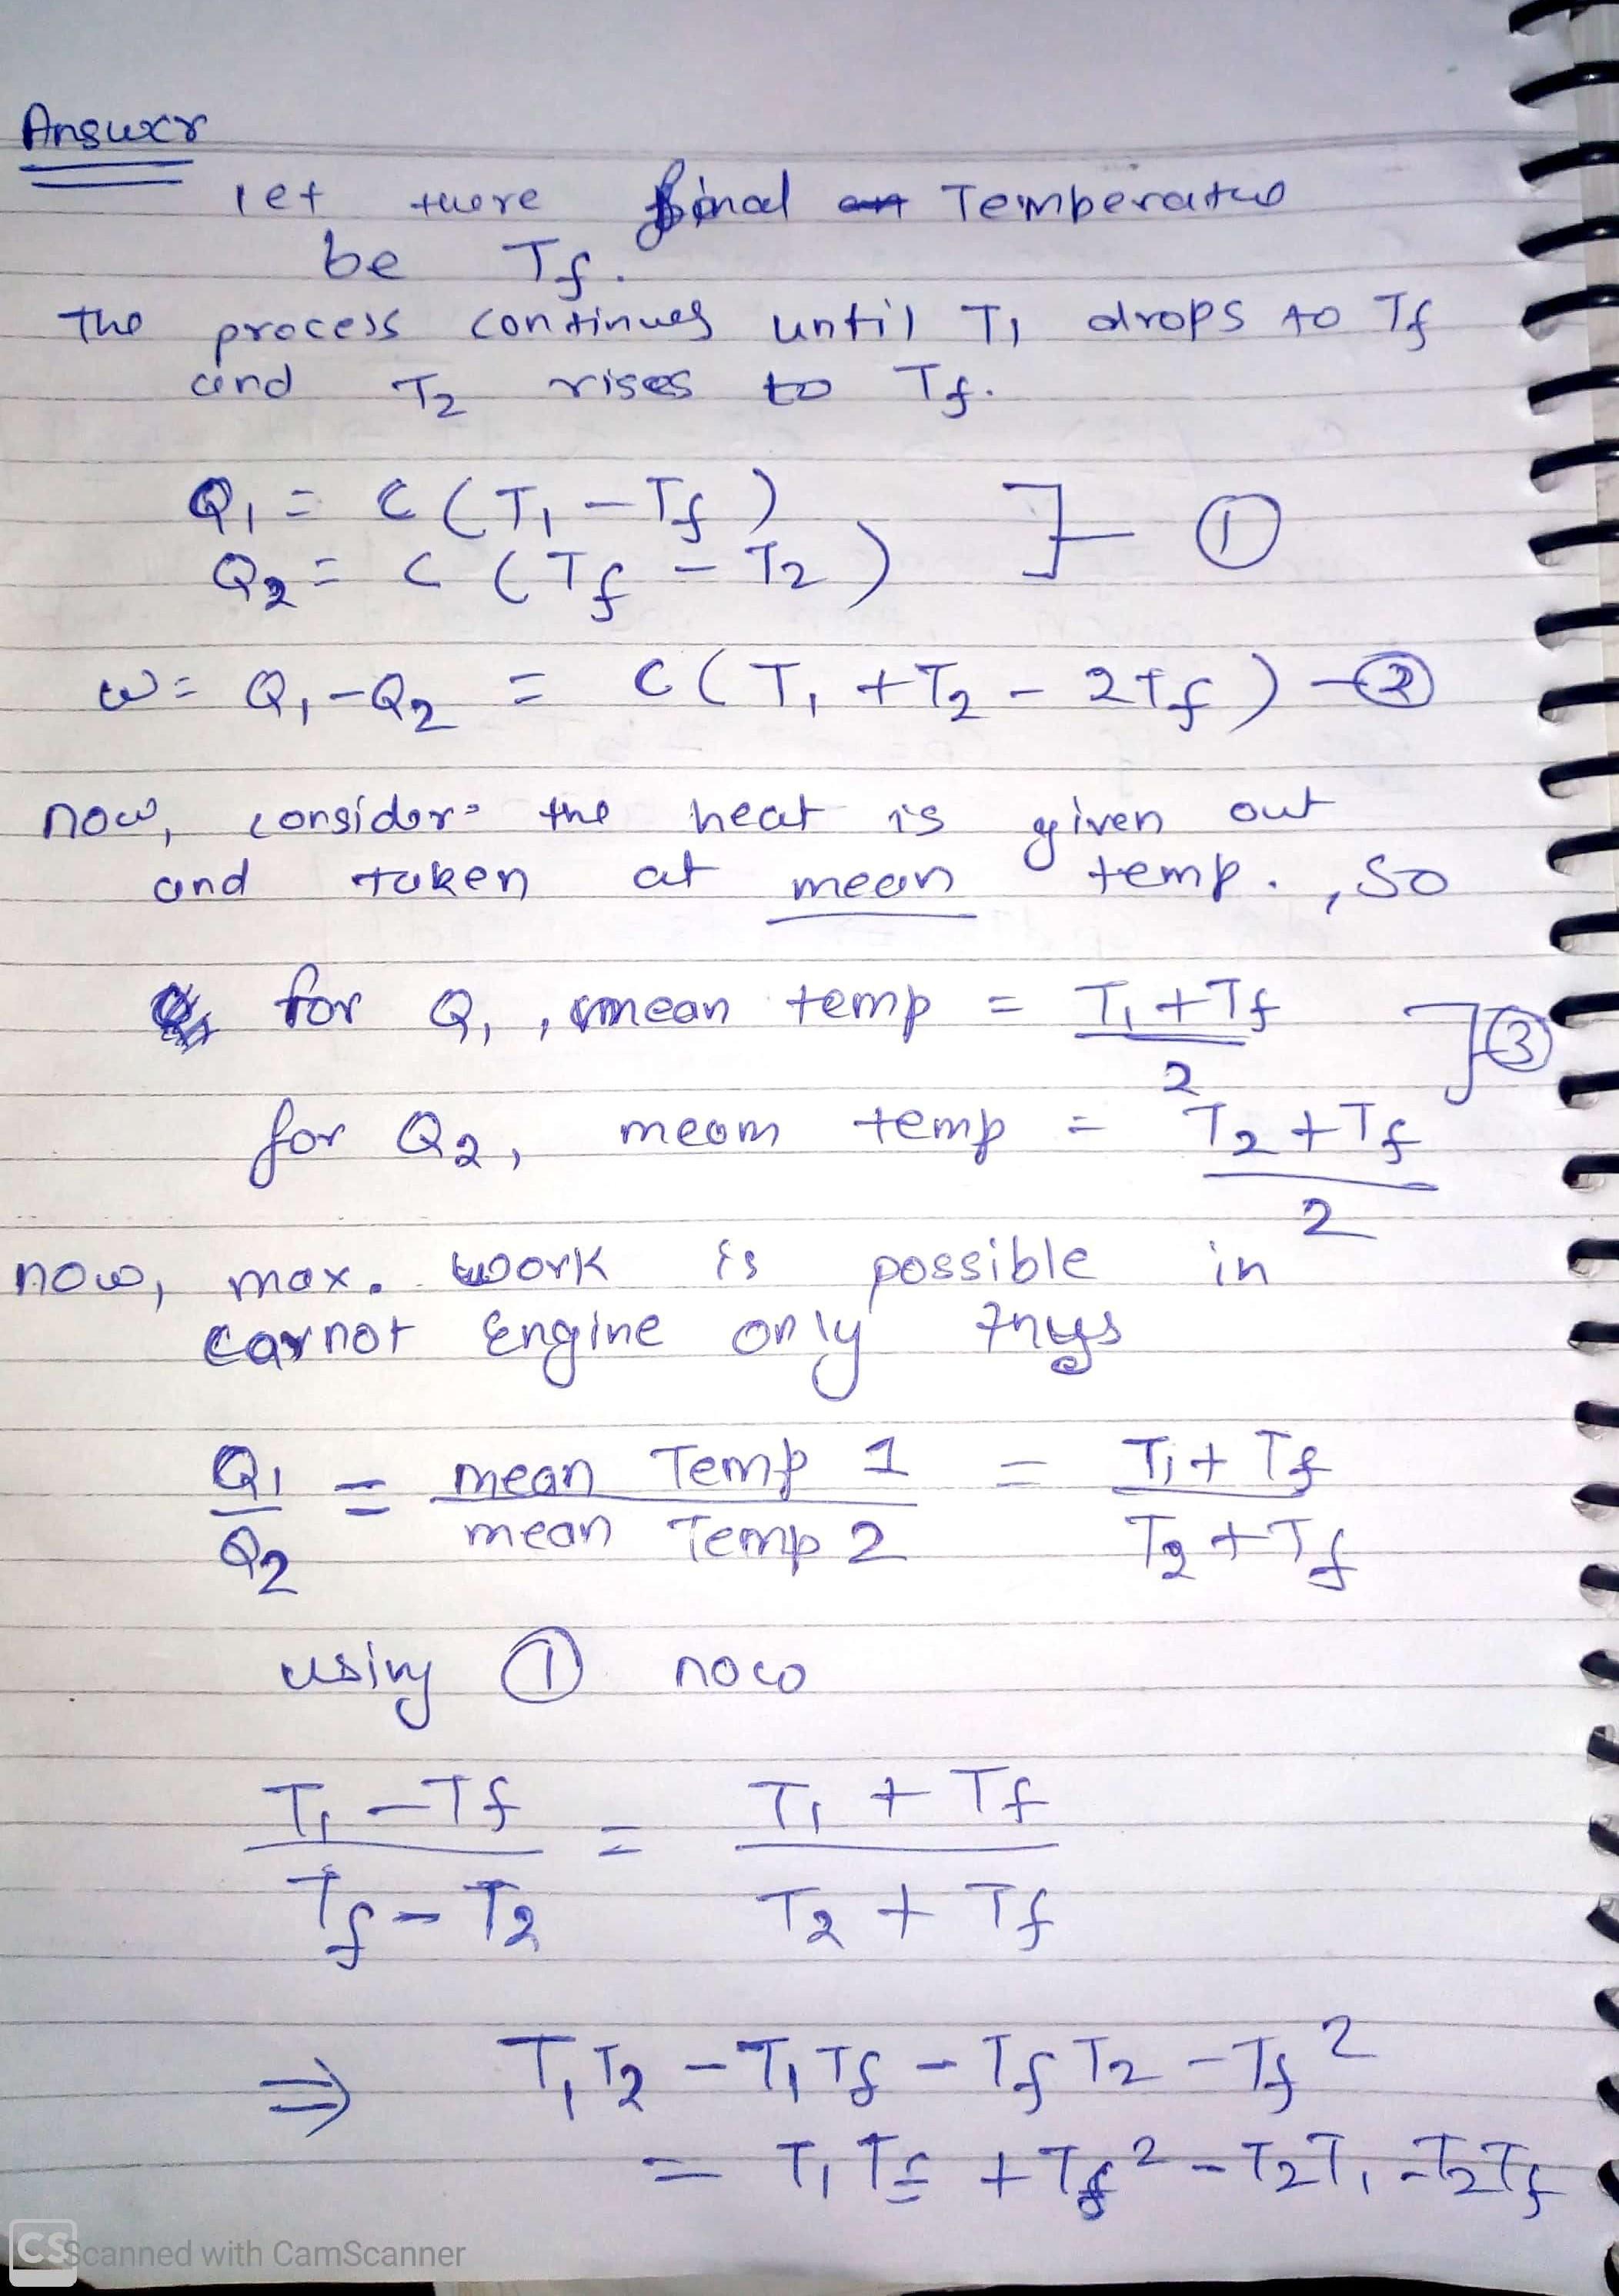 Answer
let there final Temperature
be Tf.
The process continues until T1 drops to Tf
and T2 rises to Tf.
Q1 = C (T1 - Tf)
Q2 = C (Tf - T2) ] - ①
W = Q1 - Q2 = C (T1 + T2 - 2Tf) - ②
now, consider the heat is given out
and taken at mean temp., So
for Q1, mean temp = (T1 + Tf)/2
for Q2, mean temp = (T2 + Tf)/2 ] ③
now, max. work is possible in
carnot Engine only Thus
Q1/Q2 = mean Temp 1/mean Temp 2 = (T1 + Tf)/(T2 + Tf)
using ① now
(T1 - Tf)/(Tf - T2) = (T1 + Tf)/(T2 + Tf)
⇒ T1T2 - T1Tf - TfT2 - Tf²
= T1Tf + Tf² - T2T1 - T2Tf
CS Scanned with CamScanner